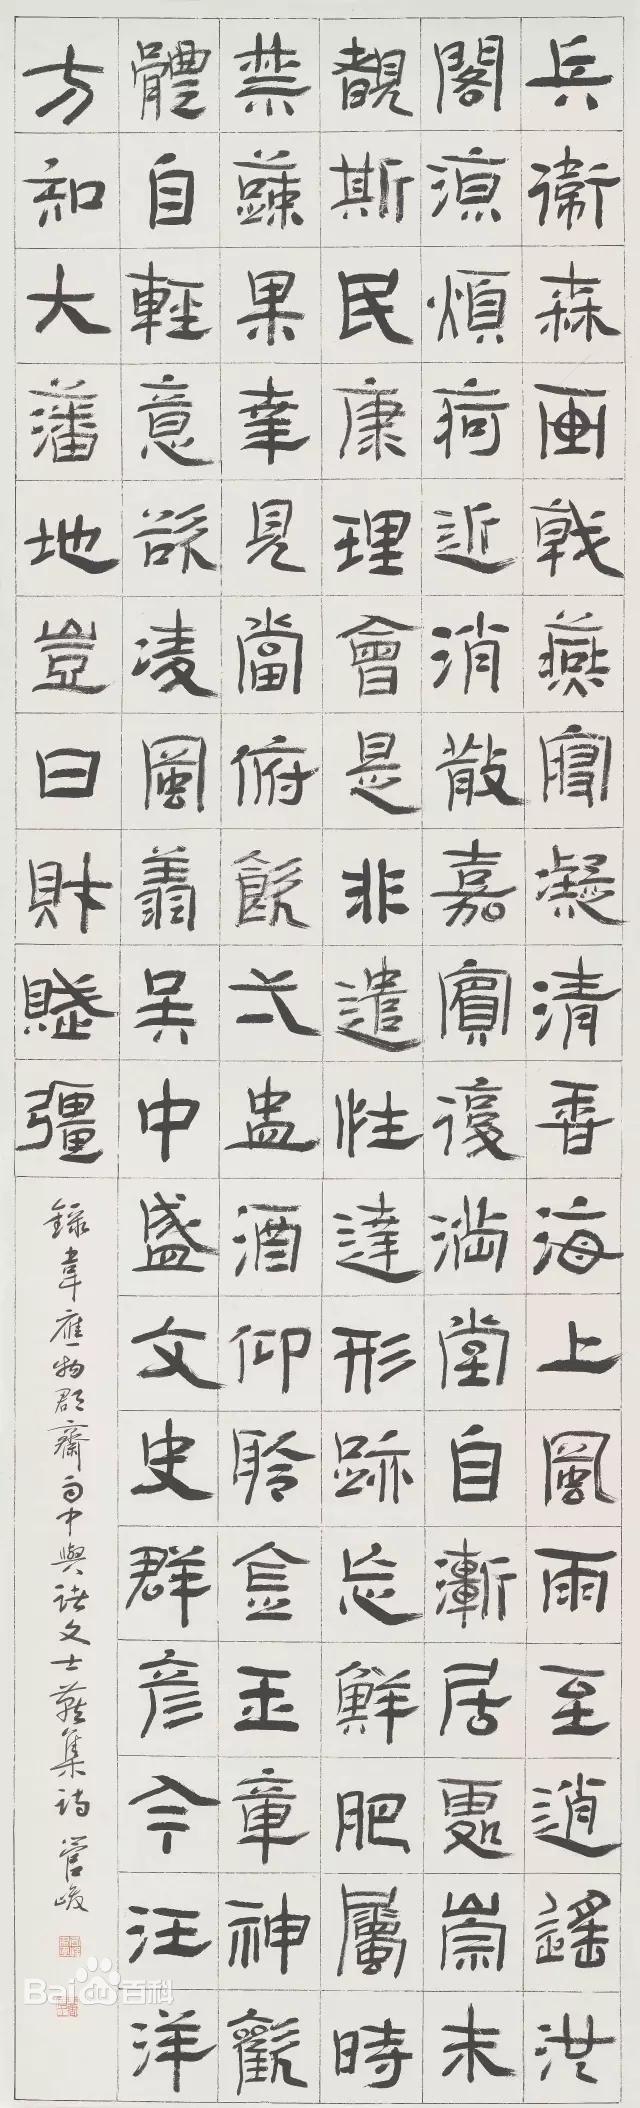 兵衛森画戟燕寢凝清香海上風雨至逍遙池
閣涼煩疴近消散嘉賓復滿堂自慚居處崇未
覩斯民康理會是非遣性達形跡忘鮮肥屬時
禁蔬果幸見當俯飲弌盃酒仰聆金玉章神歡
體自輕意欲凌風翥吳中盛文史群彥今汪洋
方知大藩地豈曰財賦彊
錄韋應物郡齋雨中與諸文士燕集詩 管峻
Bai百科